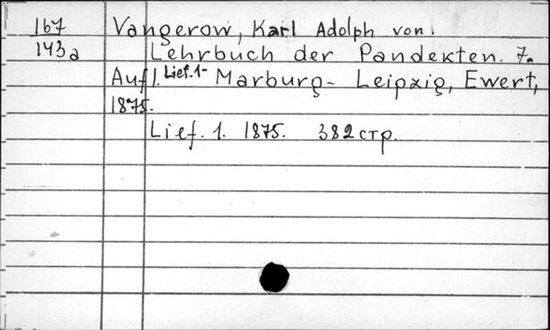 167 Vangerow, Karl Adolph von.
143a Lehrbuch der Pandekten. 7.
Aufl. Lief.1- Marburg- Leipzig, Ewert,
1875.
Lief. 1. 1875. 382 стр.